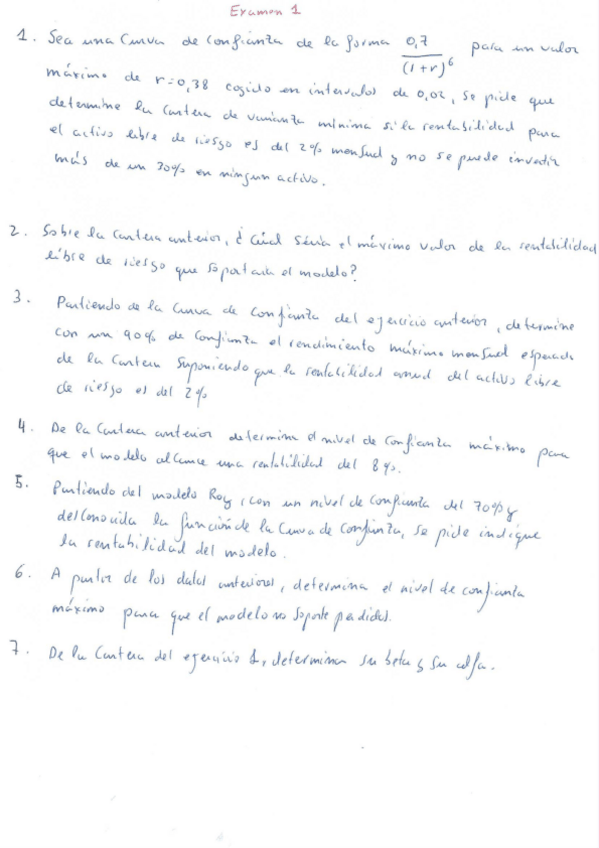 Examen 1
1. Sea una Curva de Confianza de la forma 0,7 / (1+r)^6 para un valor
máximo de r=0,38 cogido en intervalos de 0,02, se pide que
determine la cartera de varianza mínima si la rentabilidad para
el activo libre de riesgo es del 2% mensual y no se puede invertir
más de un 30% en ningun activo.
2. Sobre la cartera anterior, ¿Cuál sería el máximo valor de la rentabilidad
libre de riesgo que soportaría el modelo?
3. Partiendo de la Curva de Confianza del ejercicio anterior, determine
con un 90% de Confianza el rendimiento máximo mensual esperado
de la Cartera suponiendo que la rentabilidad anual del activo libre
de riesgo es del 2%
4. De la Cartera anterior determina el nivel de Confianza máximo para
que el modelo alcance una rentabilidad del 8%.
5. Partiendo del modelo Roy, con un nivel de Confianza del 70% y
desconocida la función de la Curva de Confianza, se pide indique
la rentabilidad del modelo.
6. A partir de los datos anteriores, determina el nivel de confianza
máximo para que el modelo no soporte perdidas.
7. De la Cartera del ejercicio 1, determinar su beta y su alfa.